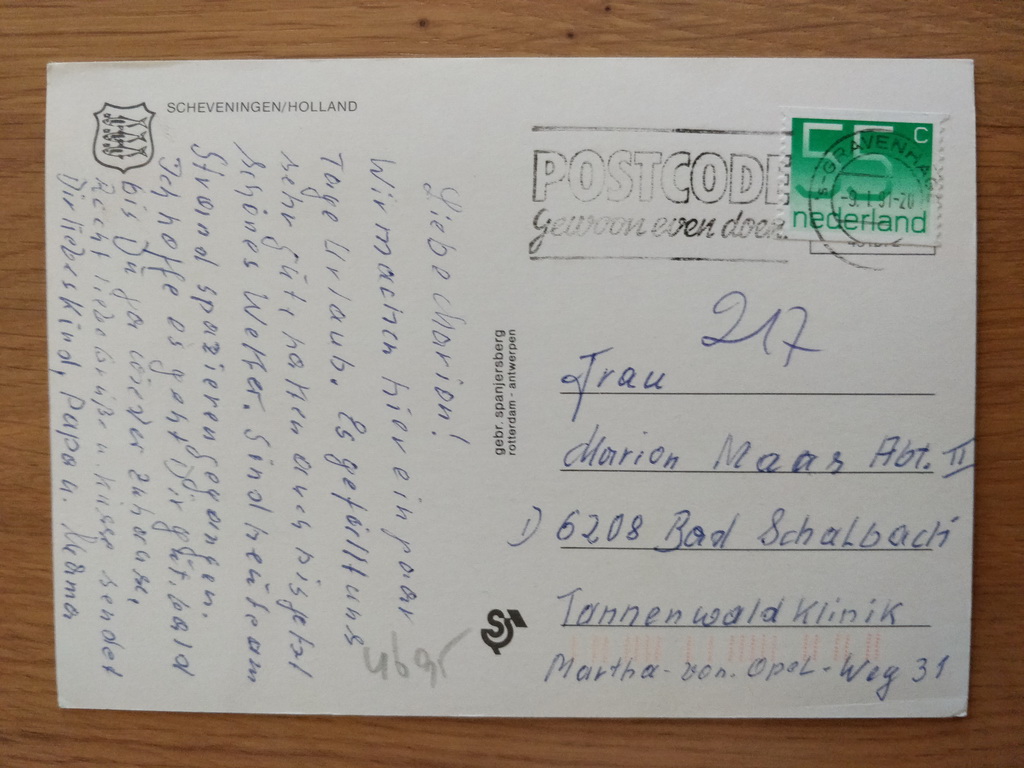 SCHEVENINGEN/HOLLAND
Liebe Marion!
Wir machen hier ein paar
Tage Urlaub. Es gefällt uns
sehr gut, haben auch bis jetzt
schönes Wetter. Sind heute am
Strand spazieren gegangen.
Ich hoffe es geht Dir gut, bald
bis Du ja wieder zuhause.
Recht liebe Grüße u. Küsse sendet
Dir liebes Kind, Papa u. Mama
gebr. spanjersberg
rotterdam - antwerpen
POSTCODE
Gewoon even doen.
'S-GRAVENHAGE
-9. I. 91-20
55 c
nederland
217
Frau
Marion Maas Abt. II
D 6208 Bad Schalbach
Tannenwald Klinik
Martha-von-Opel-Weg 31